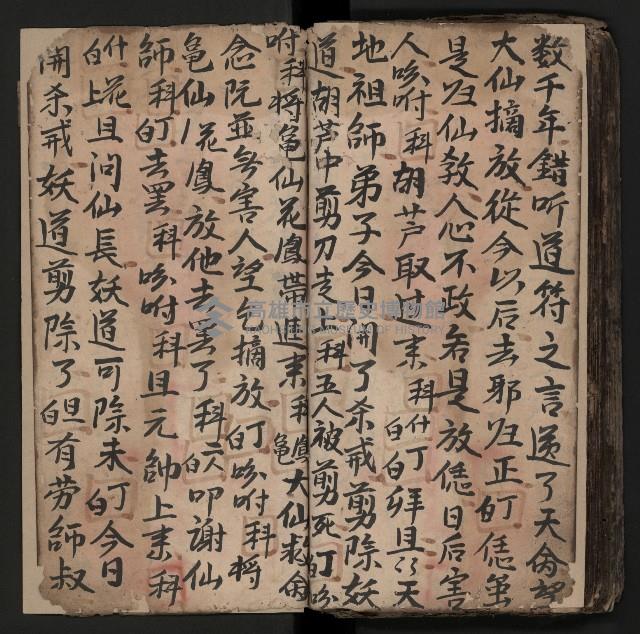 数千年錯听道符之言送了天命望
大仙摘放從今以后去耶归正白丁恁虽
是归仙教人心不政若是放恁日后害
人吩咐科胡芦取出来科什白丁白拜且了天
地祖師弟子今日開了杀戒剪除妖
道胡芦中剪刀走科五人被剪死白丁吩
咐科将龟仙花鳳带進来科龟大仙救命
念阮並无害人望乞摘放白丁吩咐科将
龟仙花鳳放他去罢了科二人白叩謝仙
師科白丁去罢科吩咐科且元帥上来科
什上白花且问仙長妖道可除未丁白今日
開杀戒妖道剪除了白旦有劳師叔
高雄市立歷史博物館
KAOHSIUNG MUSEUM OF HISTORY